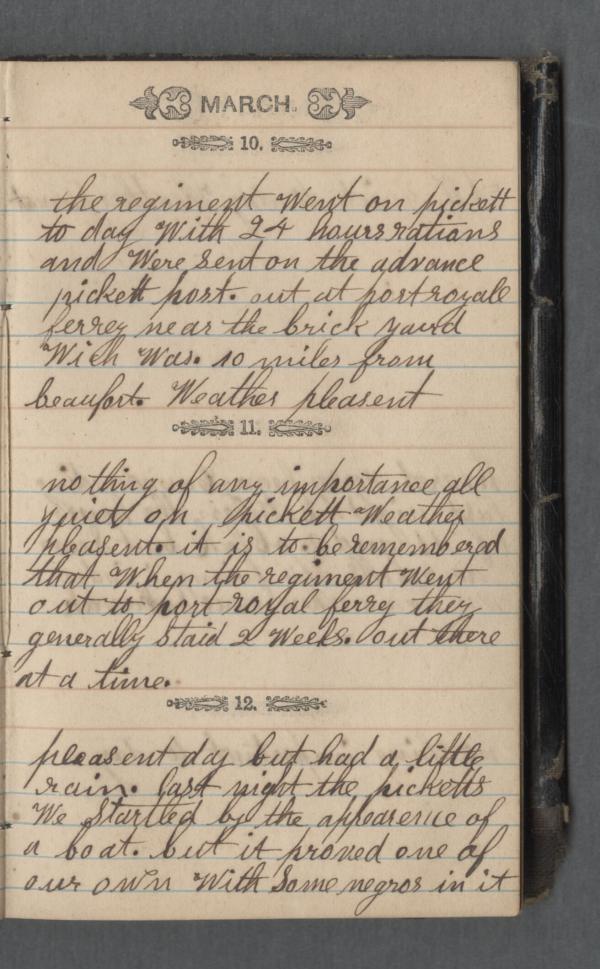 MARCH.
10.
the regiment Went on pickett
to day With 24 hours rations
and Were sent on the advance
pickett post. out at portroyall
ferrey near the brick yaurd
Wich Was. 10 miles from
beaufort. Weather pleasent
11.
nothing of any importance all
quiet on pickett Weather
pleasent. it is to be remembered
that When the regiment Went
out to port royal ferry they
generally Staid 2 Weeks. out there
at a time.
12.
pleasent day but had a little
rain. last night the picketts
We Startled by the appearence of
a boat. but it proved one of
our own With Some negros in it